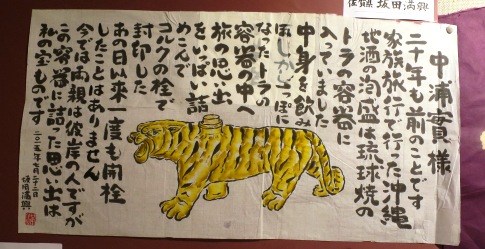 佐賀県 坂田満興
中浦寛様
二十年も前のことです
家族旅行で行った沖縄
地酒の泡盛は琉球焼の
トラの容器に
入っていました
中身を飲み
ほしからっぽに
なったトラの
容器の中へ
旅の思い出
をいっぱい詰
めこんで
コルクの栓で
封印した
あの日以来一度も開栓
したことはありません
今では両親は彼岸の人ですが
この容器に詰った思い出は
私の宝ものです
二〇一五年七月二十二日
坂田満興